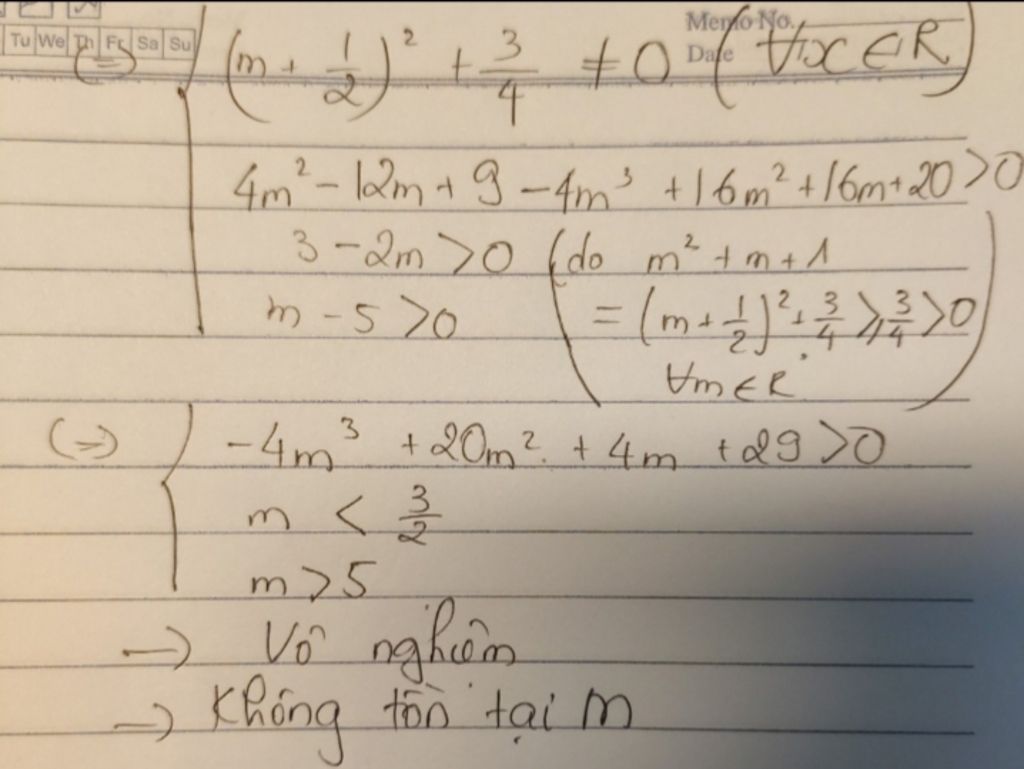 Tu We Th Fr Sa Su
Memo No.
Date
(=) (m + 1/2)² + 3/4 ≠ 0 (∀x ∈ R)
4m² - 12m + 9 - 4m³ + 16m² + 16m + 20 > 0
3 - 2m > 0 (do m² + m + 1
m - 5 > 0 = (m + 1/2)² + 3/4 ≥ 3/4 > 0
∀m ∈ R)
(=) -4m³ + 20m² + 4m + 29 > 0
m < 3/2
m > 5
→ Vô nghiệm
→ Không tồn tại m